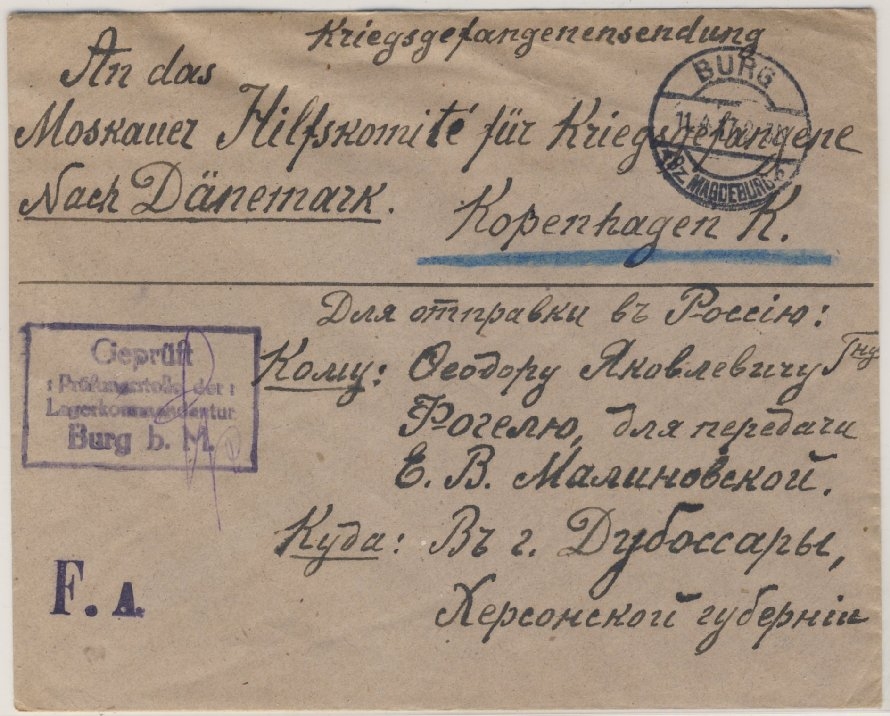 Kriegsgefangenensendung
An das
Moskauer Hilfskomité für Kriegsgefangene
Nach Dänemark.
Kopenhagen K.
BURG
(BZ. MAGDEBURG)
Для отправки въ Россію:
Кому: Ѳеодору Яковлевичу Гну
Рогелю, для передачи
Е. В. Малиновской.
Куда: Въ г. Дубоссары,
Херсонской губерніи
Geprüft
Prüfungsstelle der
Lagerkommandantur
Burg b. M.
F. A.